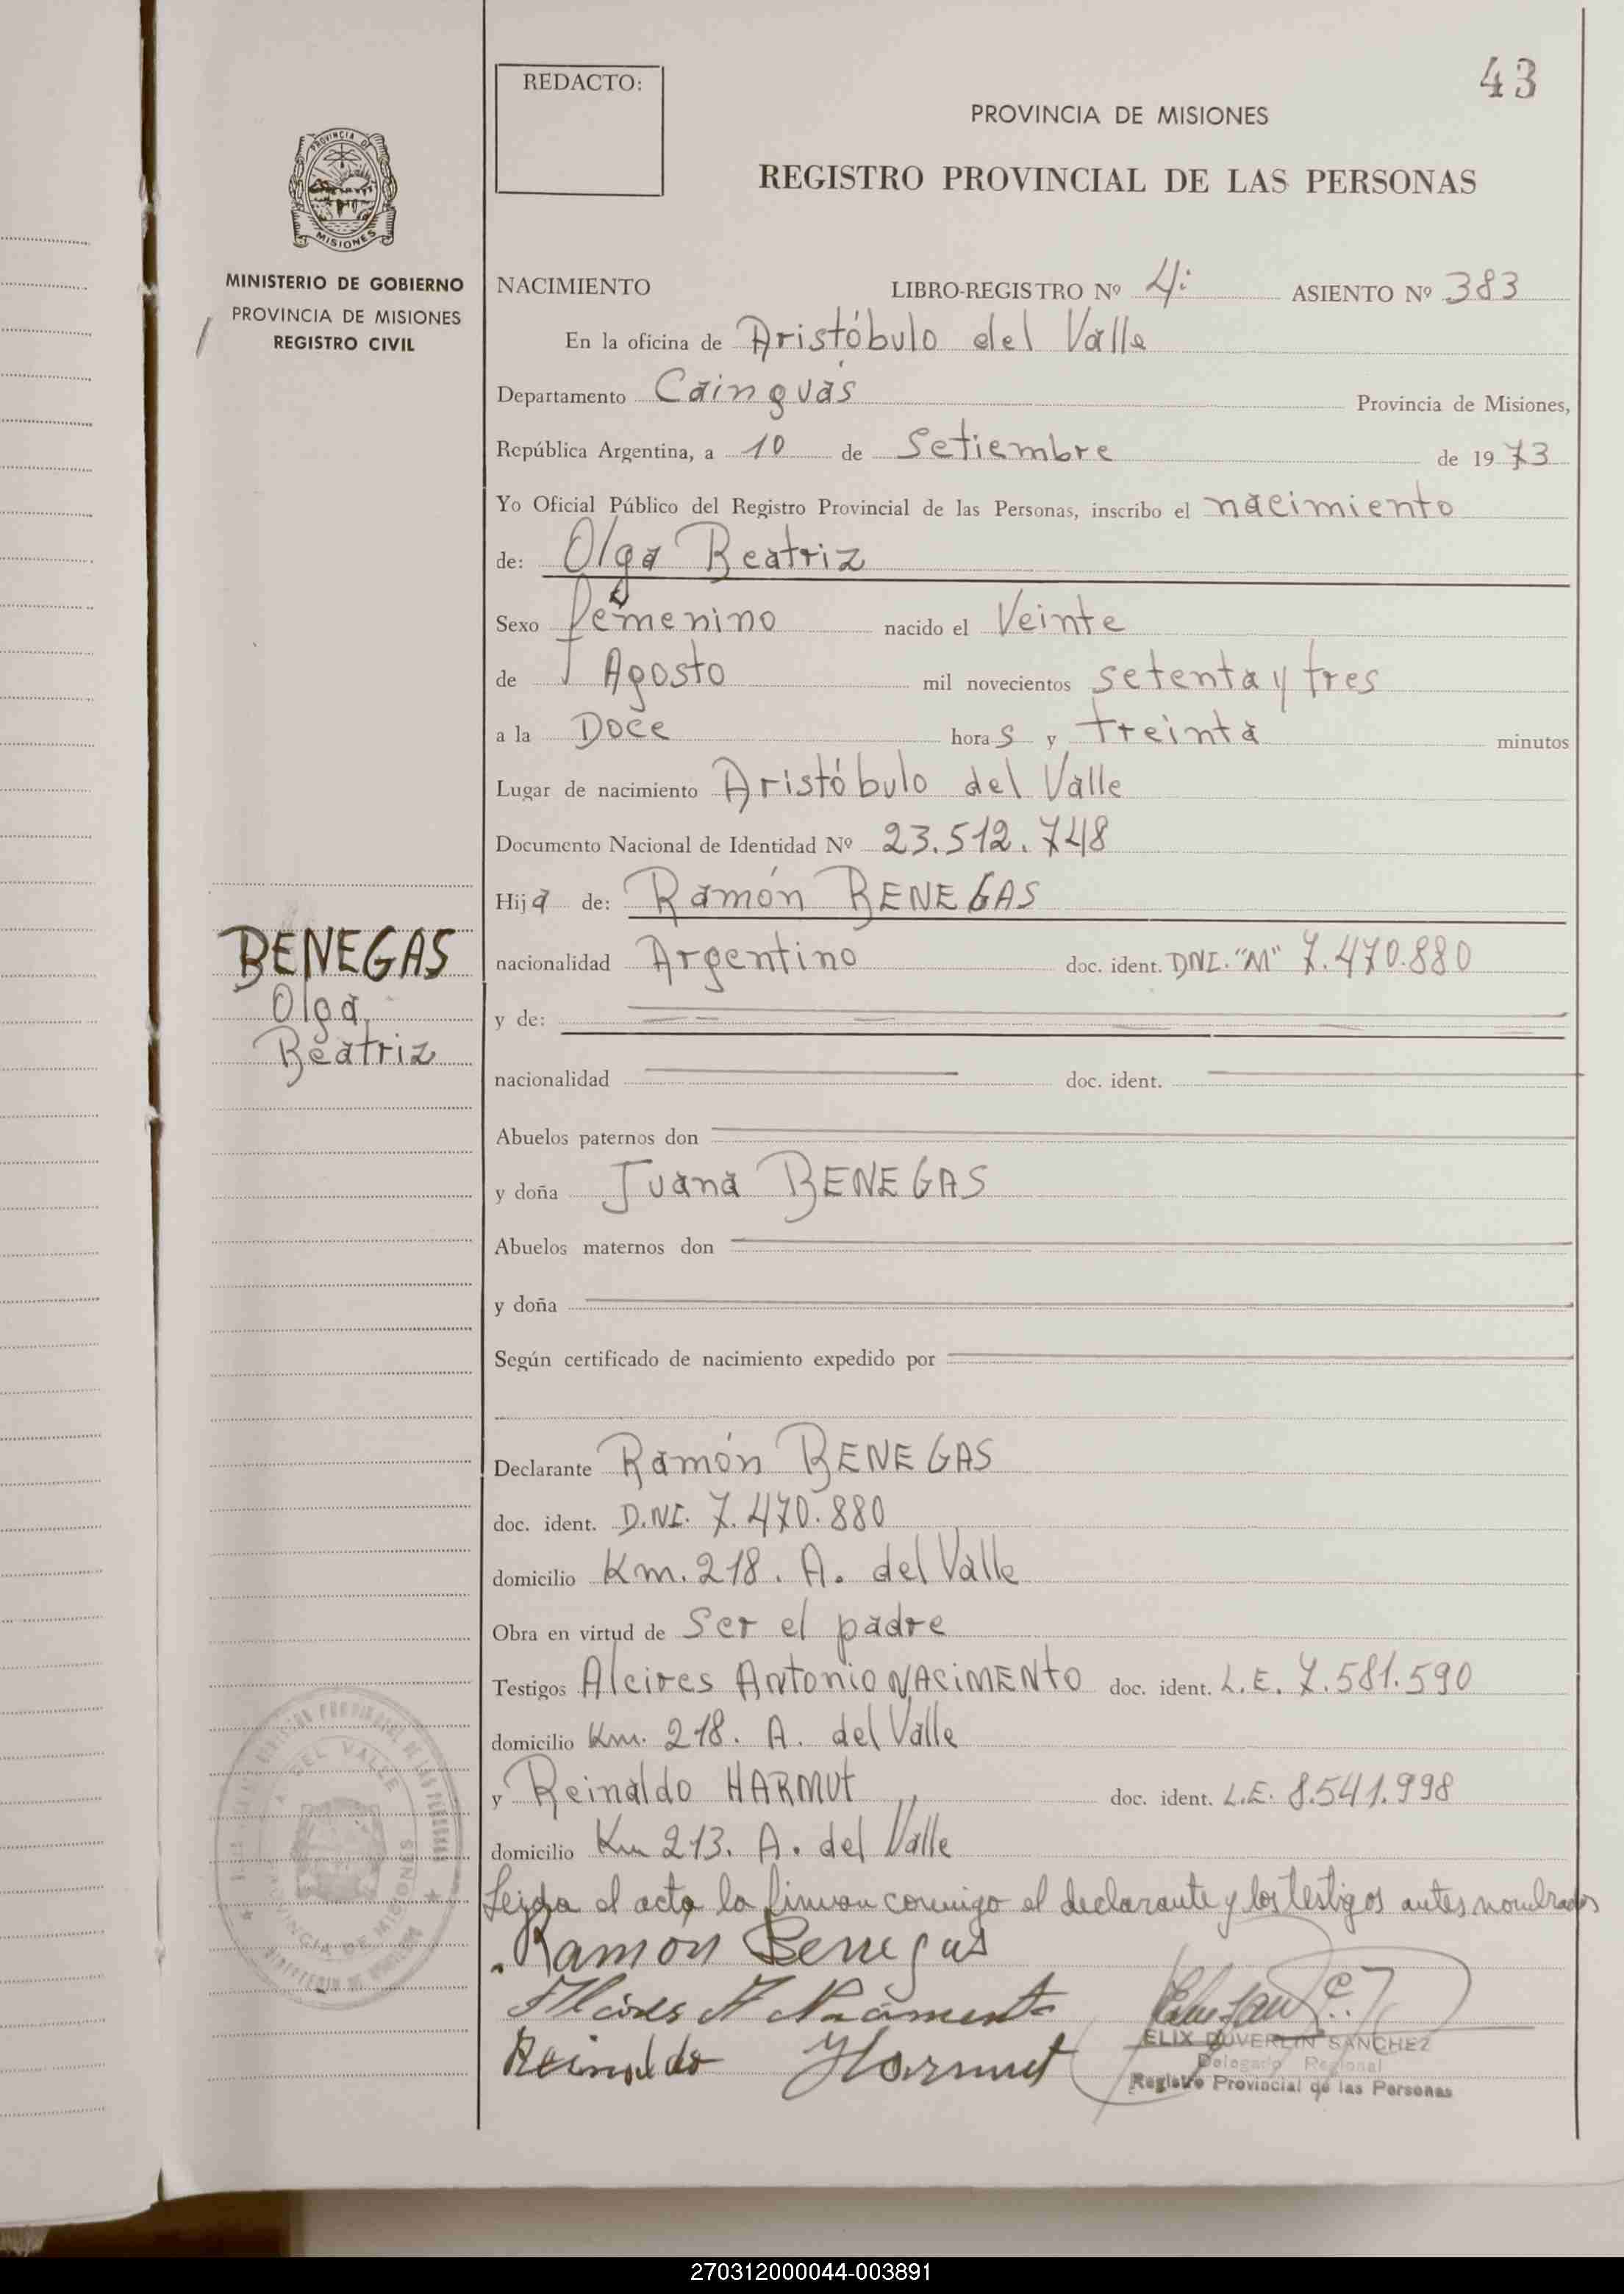 43
REDACTO:
PROVINCIA DE MISIONES
REGISTRO PROVINCIAL DE LAS PERSONAS
PROVINCIA DE
MISIONES
MINISTERIO DE GOBIERNO
PROVINCIA DE MISIONES
REGISTRO CIVIL
NACIMIENTO LIBRO-REGISTRO Nº 4: ASIENTO Nº 383
En la oficina de Aristóbulo del Valle
Departamento Cainguás Provincia de Misiones,
República Argentina, a 10 de Setiembre de 1973
Yo Oficial Público del Registro Provincial de las Personas, inscribo el nacimiento
de: Olga Beatriz
Sexo femenino nacido el Veinte
de Agosto mil novecientos setenta y tres
a la Doce horas y treinta minutos
Lugar de nacimiento Aristóbulo del Valle
Documento Nacional de Identidad Nº 23.512.748
Hija de: Ramón BENEGAS
BENEGAS
Olga
Beatriz
nacionalidad Argentino doc. ident. DNI. "M" 7.470.880
y de:
nacionalidad doc. ident.
Abuelos paternos don
y doña Juana BENEGAS
Abuelos maternos don
y doña
Según certificado de nacimiento expedido por
Declarante Ramón BENEGAS
doc. ident. D.NI. 7.470.880
domicilio Km. 218. A. del Valle
Obra en virtud de Ser el padre
Testigos Alcires Antonio NACIMENTO doc. ident. L.E. 7.581.590
domicilio Km. 218. A. del Valle
y Reinaldo HARMUt doc. ident. L.E. 8.541.998
domicilio Km 213. A. del Valle
Leida el acta la firman conmigo el declarante y los testigos antes nombrados
Ramon Benegas
Alcires A Nacimento
Reinaldo Harmut
ELIX DUVERLIN SANCHEZ
Delegado Regional
Registro Provincial de las Personas
DEL VALLE
PROVINCIA DE MISIONES
270312000044-003891